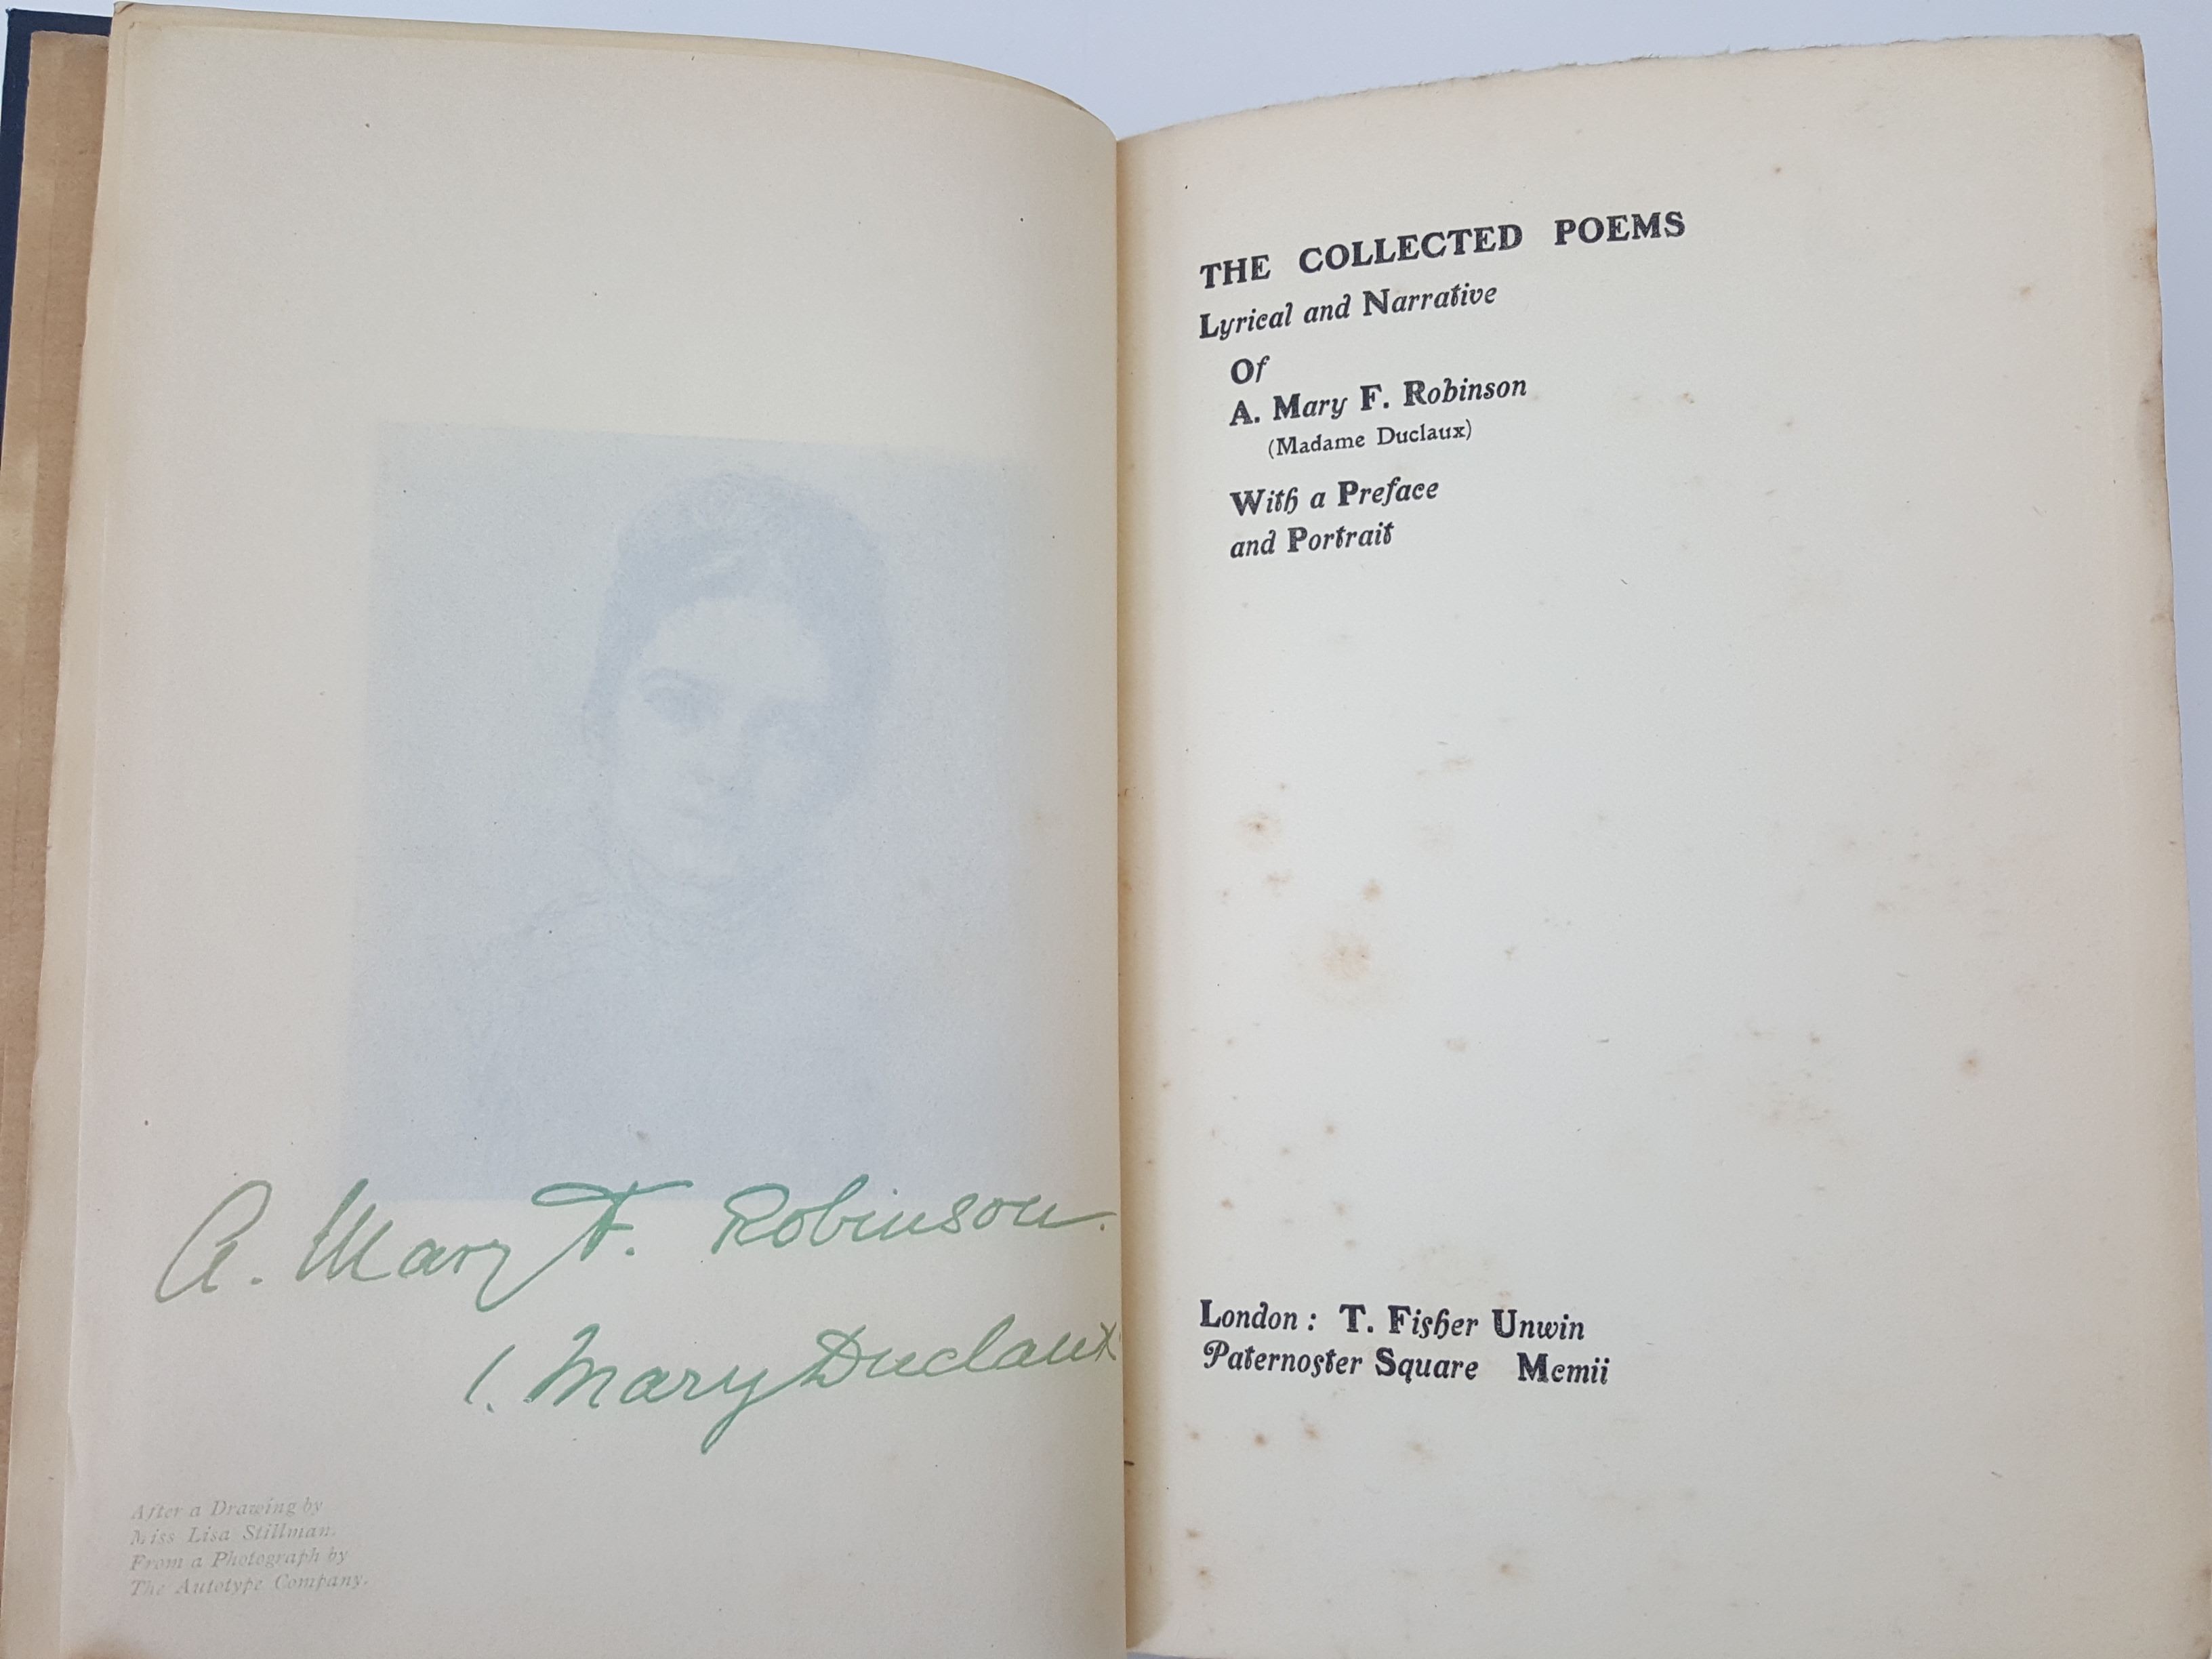 A. Mary F. Robinson.
(. Mary Duclaux
After a Drawing by
Miss Lisa Stillman.
From a Photograph by
The Autotype Company.
THE COLLECTED POEMS
Lyrical and Narrative
Of
A. Mary F. Robinson
(Madame Duclaux)
With a Preface
and Portrait
London: T. Fisher Unwin
Paternoster Square Mcmii